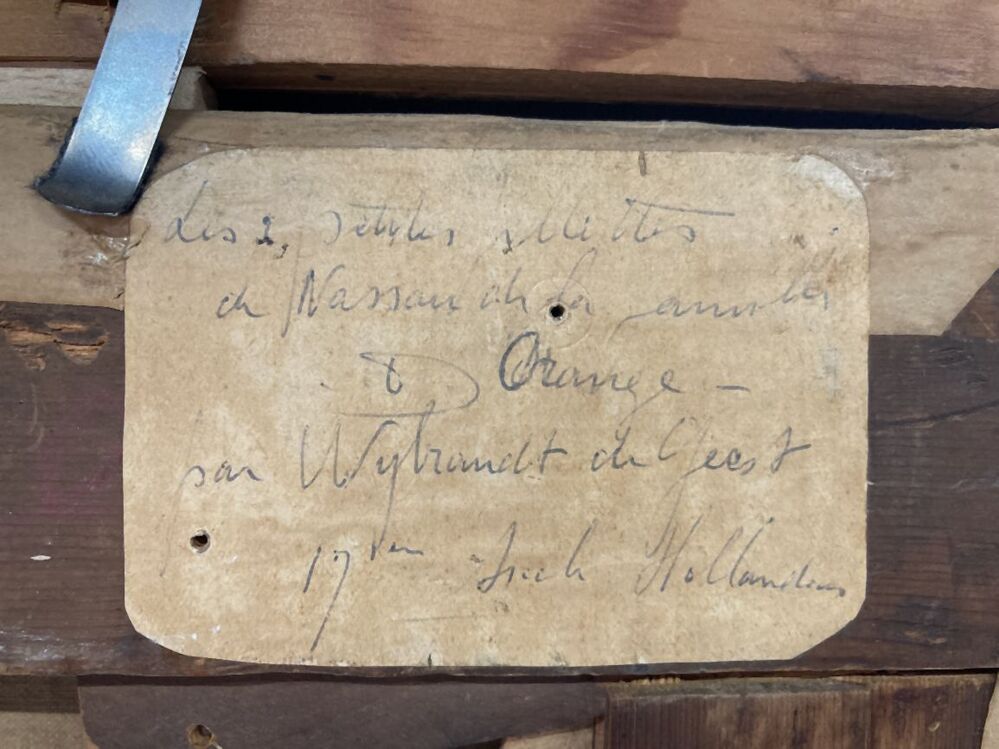 Les 2, petites fillettes
de Nassau de la famille
D Orange -
par Wybrandt de Geest
17em Siècle Hollandais